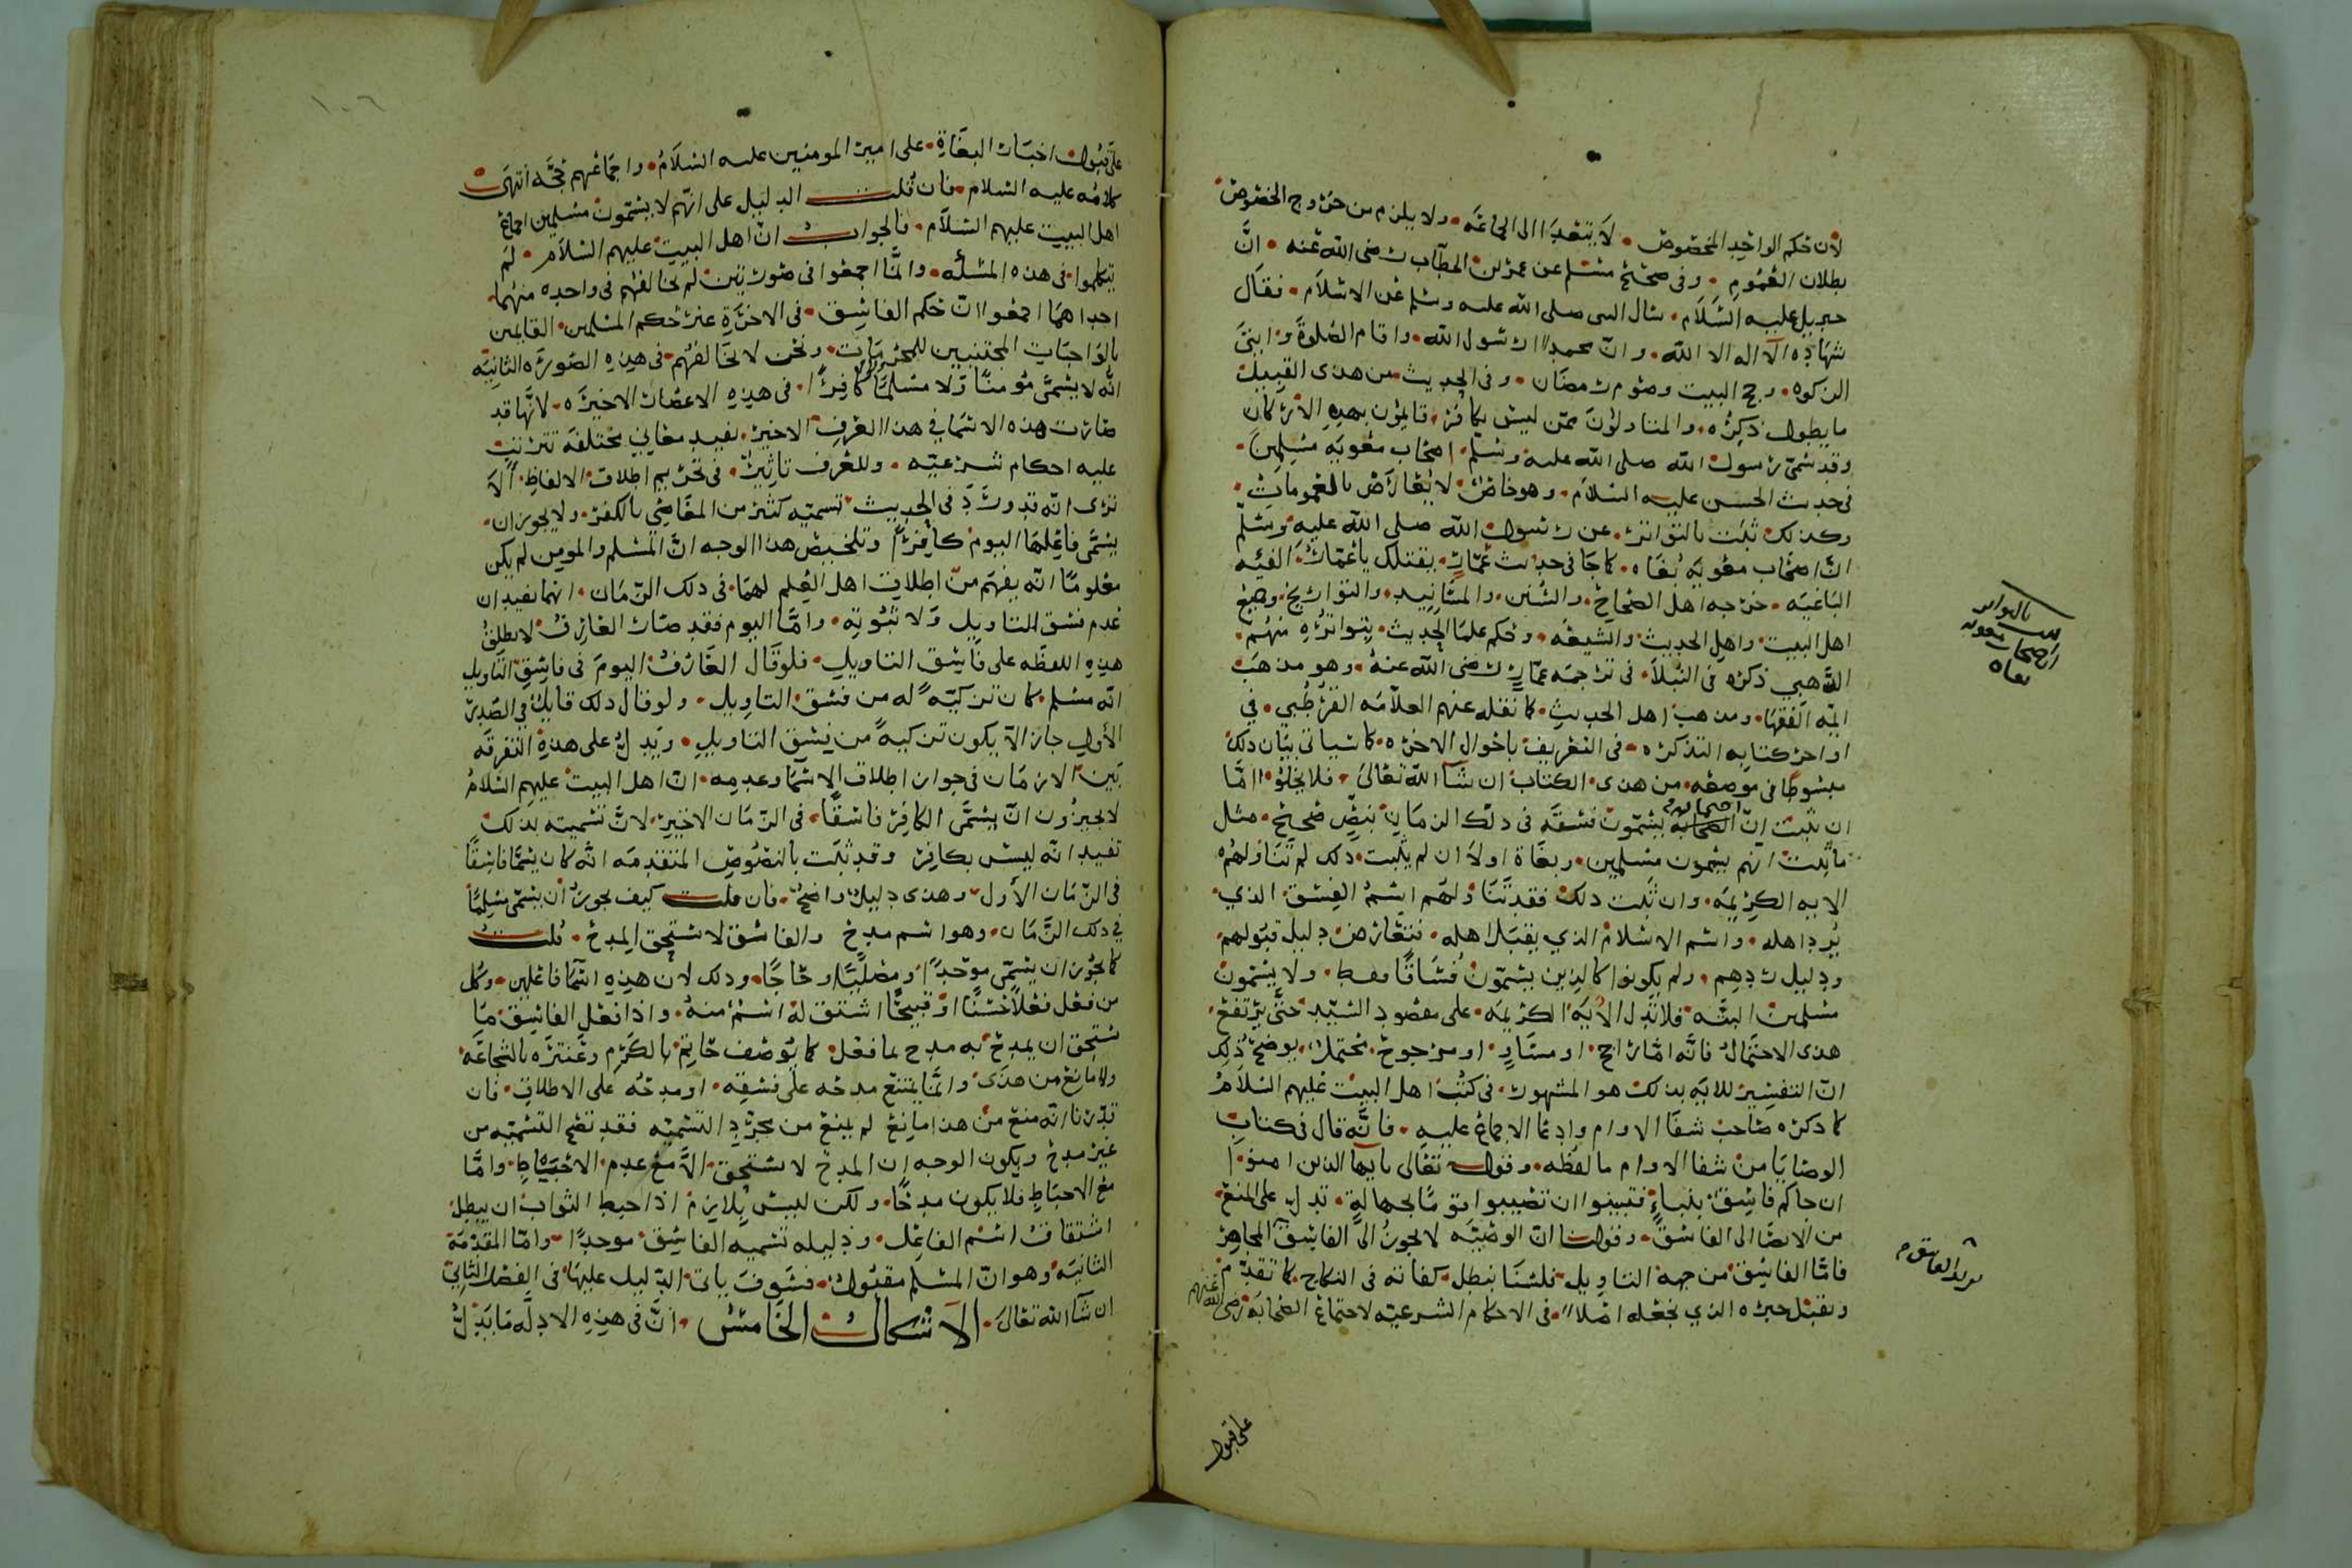 لان حكم الواحد المخصوص لا يتعدا الى الجماعه ولا يلزم من خروج الخصوص
بطلان العموم وفى صحيح مسلم عن عمر بن الخطاب رضى الله عنه انَّ
جبريل عليه السَّلام سال النبى صلى الله عليه وسلم عن الاسلام فقال
شهاده الّا اله الا الله وانّ محمدًا رسول الله واقام الصلوة وايتى
الزكوه وحج البيت وصوم رمضان وفى الحديث من هذى القبيل
ما يطول ذكره والمتاولون ممن ليس بكافر قايلون بهذه الاركان
وقد سمّى رسول الله صلى الله عليه وسلّم اصحاب معويه مسلمين
فى حديث الحسن عليه السّلام وهو خاص لا يعارض بالعمومات
وكذلك ثبت بالتواتر عن رسول الله صلى الله عليه وسلّم
انّ اصحاب معويه بُغاه كما جا فى حديث عمّار يقتلك يا عمار الفيه
الباغيه خرجه اهل الصحاح والسُنن والمسَانيد والتواريخ وصح
اهل البيت واهل الحديث والشيعه وحكم علما الحديث بتواتره منهم
الذهبي ذكره فى النبلا فى ترجمه عمّار رضى الله عنه وهو مذهب
ايمّه الفقها ومذهب اهل الحديث كما نقله عنهم العلامه القرطُبي في
اواخر كتابه التذكره فى التعريف باحوال الاخره كما سياتى بيان ذلك
مبسوطا فى موضعه من هذى الكتاب ان شا الله تعالى فلا يخلو امّا
ان يثبت انّ الصحابه يسمّون فسقه فى ذلك الزمان بنصٍّ صحيح مثل
ما ثبت انهم يسمون مسلمين وبغاة اولا ان لم يثبت ذلك لم تتناولهم
الايه الكريمه وان ثبت ذلك فقد تناولهم اسم الفسق الذي
يُرد اهله واسم الاسلام الذي يقبل اهله فتعارض دليل قبولهم
ودليل ردهم ولم يكونوا كالذين يسمّون فُساقا فقط ولا يسمون
مسلمين البتَّه فلا تدل الأيه الكريمه على مقصود السّيد حتّى يرتفع
هذى الاحتمال فانّه امّا راجح او مساوٍ او مرجوح محتمل يوضح ذلك
انّ التفسير للايه بذلك هو المشهور فى كتب اهل البيت عليهم السّلام
كما ذكره صاحب شفا الاوام وادعا الاجماع عليه فانّه قال فى كتاب
الوصايا من شفا الاوام ما لفظه وقوله تعالى يايها الذين امنوا
ان جاكم فاسق بنباءٍ فتبينوا ان تصيبوا قومًا بجهالةٍ تدل على المنع
من الايصا الى الفاسق وقولنا انّ الوصيّه لا يجوز الى الفاسق المجاهر
فامّا الفاسق من جهة التاويل فلسنا نبطل كفاته فى النكاح كما تقدّم
ونقبل خبره الذي نجعله اصلاً فى الاحكام الشرعيّه لاجتماع الصّحابة رضى الله عنهم
بالتواتر
ان اصحاب معويه
بغاه
على قبول
١٠٦
على قبول اخبار البغاة على امير المومنين عليه السّلام واجماعهم حجّه انتهى
كلامه عليه السلام فان قلت الدليل على انّهم لا يسمّون مسلمين اجماع
اهل البيت عليهم السّلام فالجواب انّ اهل البيت عليهم السّلام لم
يتكلموا فى هذه المسئله وانّما اجمعوا فى صورتين لم نخالفهم فى واحده منهما
احداهما اجمعوا انّ حكم الفاسق فى الاخرة غير حكم المسلمين القايمين
بالواجبات المجتنبين للمحرمات ونحن لا نخالفهم فى هذه الصورة الثانيه
انّه لا يسمّى مؤمنًا ولا مسلمًا ولا كافرًا فى هذه الاعصار الاخيره لانّها قد
صارت هذه الاسما في هذا العرف الاخير يفيد معانى مختلفه تترتب
عليه احكام شرعيّه وللعرف تاثيرٌ فى تحريم اطلاق الالفاظ ألا
ترى انّه قد ورد فى الحديث تسميه كثير من المعاصي بالكفر ولا يجوز ان
يسمّى فاعلها اليوم كافرًا وتلخيص هذا الوجه انَّ المسلم والمومن لم يكن
معلومًا انّه يفهم من اطلاق اهل العلم لهما فى ذلك الزّمان انهما يفيدان
عدم فسق التاويل ولا ثبوته وامّا اليوم فقد صار العارف لا يطلق
هذه اللفظه على فاسق التاويل فلو قال العارف اليوم فى فاسق التاويل
انّه مسلم كان تزكيةً له من فسق التاويل ولو قال ذلك قايلٌ في الصدر
الأول جاز الّا يكون تزكيةً من فسق التاويل ويدل على هذه التفرقه
بين الازمان فى جواز اطلاق الاسما وعدمه انّ اهل البيت عليهم السلام
لا يجيزون انّ يسمَّى الكافر فاسقًا فى الزّمان الاخير لانَّ تسميته بذلك
تفيد انّه ليس بكافر وقد ثبت بالنصوص المتقدمه انّه كان يسمّا فاسقًا
فى الزّمان الأول وهذى دليل واضح فان قلت كيف يجوز أن يسمّى مسلمًا
في ذلك الزمان وهو اسم مدح والفاسق لا يستحق المدح قلت
كما يجوز ان يسمّى موحدًا ومصليًا وحاجًا وذلك لان هذه اسمًا فاعلين وكل
من فعل فعلاً حسنًا او قبيحًا اشتق له اسم منه واذا فعل الفاسق ما
يستحق ان يمدح به مدح بما فعل كما يوصف حاتم بالكرم وعنتره بالشجاعه
ولا مانع من هذى وانّما يمتنع مدحه على فسقه او مدحُه على الاطلاق فان
قدّرنا انّه منع من هذا مانع لم يمنع من مجرّد التسميه فقد تصح التسميه من
غير مدح ويكون الوجه إن المدح لا يستحق الّا مع عدم الاحباط وامّا
مع الاحباط فلا يكون مدحًا ولكن ليس يلازم اذا احبط الثواب ان يبطل
اشتقاق اسم الفاعل ودليله تسميه الفاسق موحدًا وامّا المقدّمة
الثانيه وهو انّ المسلم مقبول فسَوف ياتى الدّليل عليها فى الفصل الثاني
ان شا الله تعالى الاشكال الخامس انَّ فى هذه الادلّه ما يدلّ